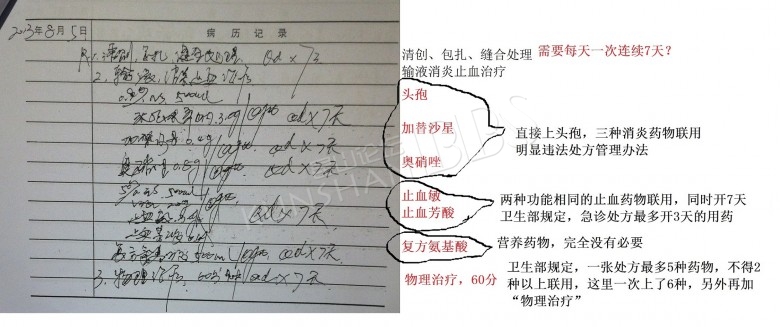 2013年8月5日
病历记录
1.清创、包扎、缝合处理 Qd×7天
2.输液消炎止血治疗
0.9% NS 500ml
3.0g qd×7天
0.4g qd×7天
奥硝唑 qd×7天
5% 500ml
qd×7天
500ml qd×7天
3.物理治疗,60分 qd×7天
清创、包扎、缝合处理 需要每天一次连续7天?
输液消炎止血治疗
头孢
加替沙星
奥硝唑
直接上头孢,三种消炎药物联用
明显违法处方管理办法
止血敏
止血芳酸
两种功能相同的止血药物联用,同时开7天
卫生部规定,急诊处方最多开3天的用药
复方氨基酸
营养药物,完全没有必要
物理治疗,60分
卫生部规定,一张处方最多5种药物,不得2
种以上联用,这里一次上了6种,另外再加
“物理治疗”
BBS